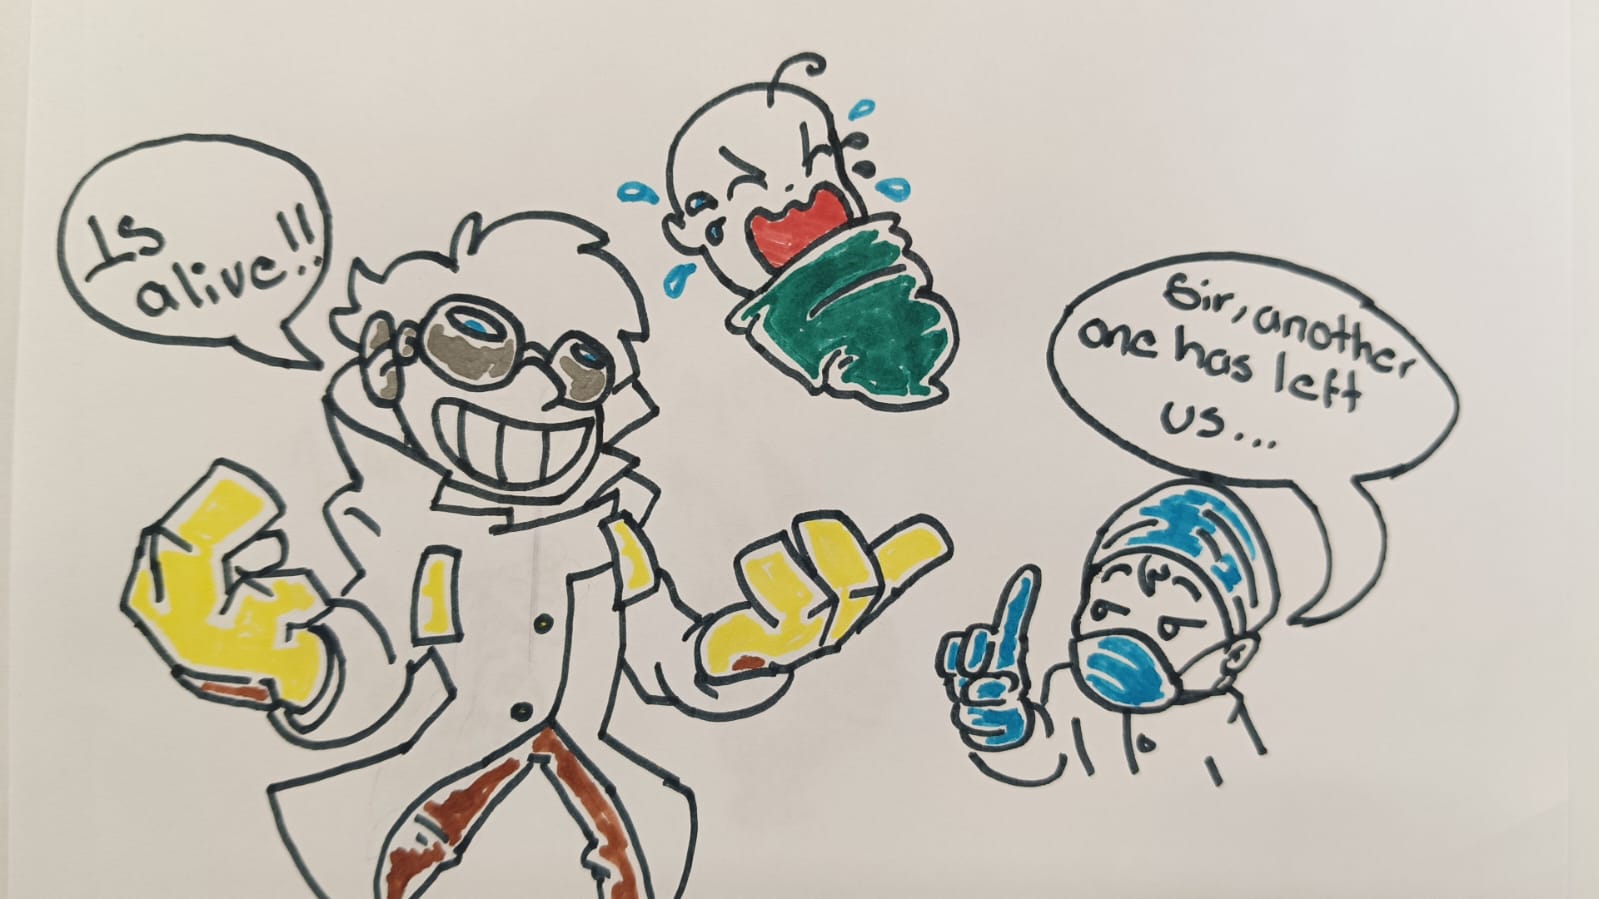 Is
alive!!
Sir, another
one has left
us...